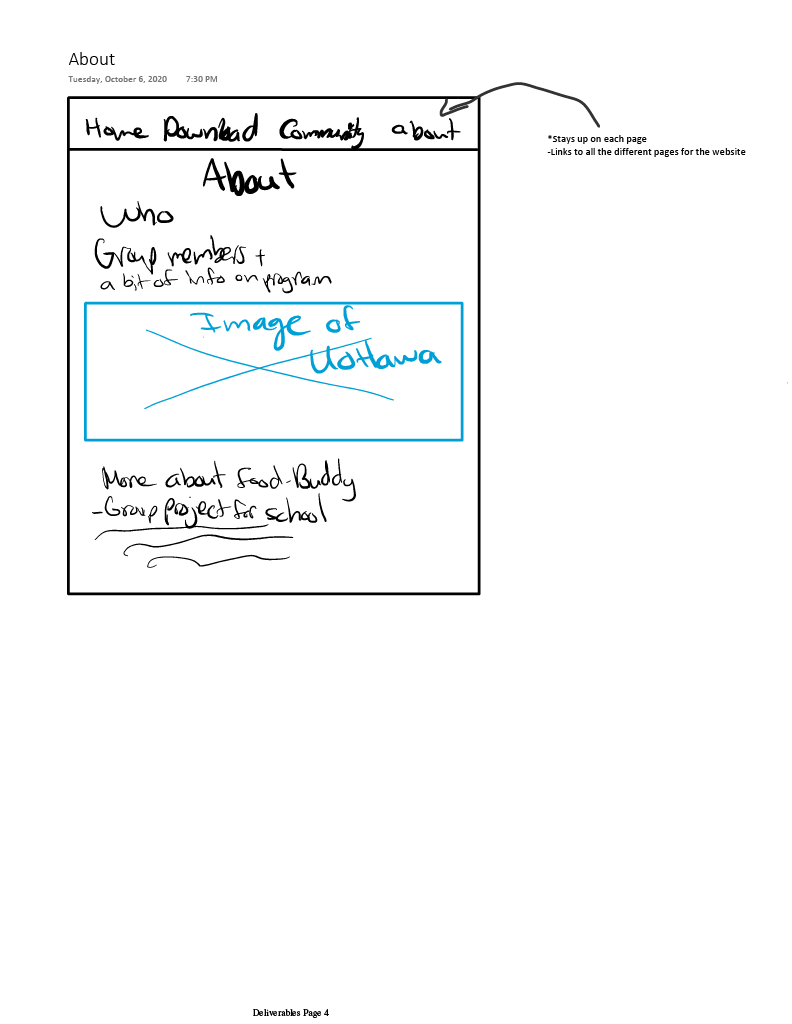 About
Tuesday, October 6, 2020 7:30 PM
Home Download Community about
*Stays up on each page
-Links to all the different pages for the website
About
Who
Group members +
a bit of info on program
Image of
UOttawa
More about Food-Buddy
-Group project for school
Deliverables Page 4